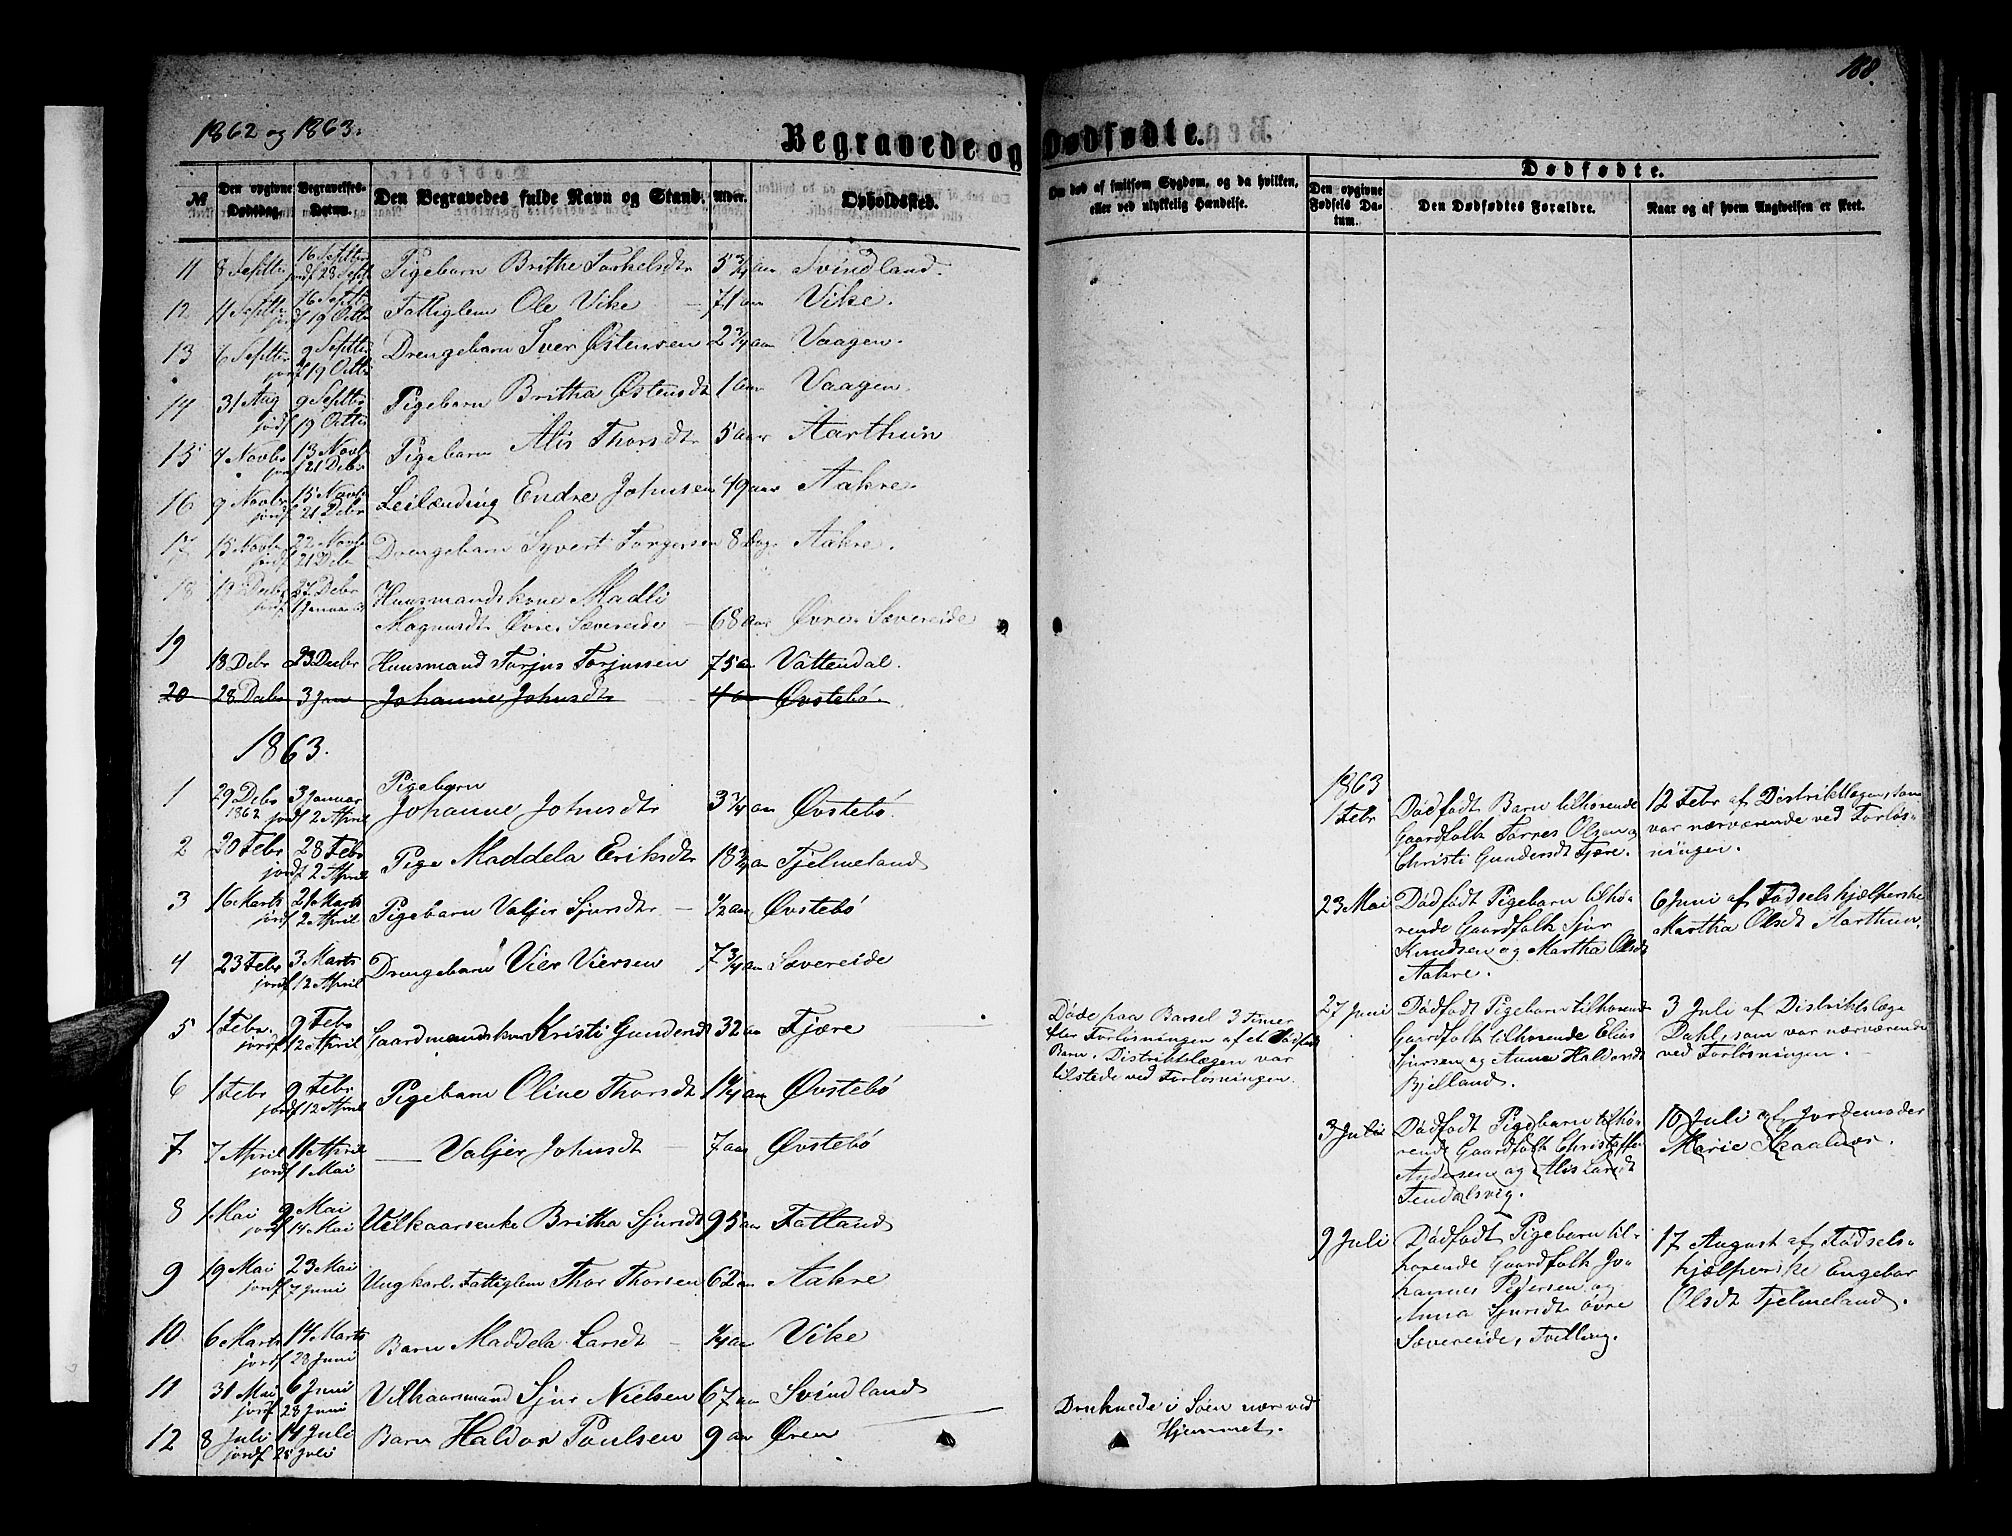 188
1862 og 1863.
Begravede og Dødfødte.
№ Den opgivne Dødsdag. Begravelses-Datum. Den Begravedes fulde Navn og Stand. Alder. Opholdssted.
Om død af smitsom Sygdom, og da hvilken, eller ved ulykkelig Hændelse.
Dødfødte.
Den opgivne Fødsels Datum. Den Dødfødtes Forældre. Naar og af hvem Angivelsen er skeet.
11 8 Septbr 16 Septbr jordf 28 Septb Pigebarn Brithe Torkelsdtr 5 3/4 aar Svindland.
12 11 Septbr 16 Septbr jordf 19 Octbr Fattiglem Ole Vike — 71 aar Vike.
13 6 Septbr 9 Septbr jordf 19 Octbr Drengebarn Iver Østensen 2 3/4 aar Vaagen.
14 31 Aug 9 Septbr jordf 19 Octbr Pigebarn Britha Østensdtr 1 aar Vaagen.
15 4 Novbr 13 Novbr jordf 21 Debr Pigebarn Alis Thorsdtr 5 aar Aarthun
16 9 Novbr 15 Novbr jordf 21 Debr Leilænding Endre Johnsen 49 aar Aakre.
17 15 Novbr 22 Novbr jordf 21 Debr Drengebarn Syvert Torgersen 8 Dage Aakre.
18 19 Debr 27 Debr jordf 1 Januar Huusmandskone Madli
Magnusdtr Øvre Sævereide — 68 aar Øvre Sævereide
19 18 Debr 23 Decbr Huusmand Torjus Torjussen 75 aar Vattendal.
20 28 Debr 3 Jan Johanne Johnsdtr 4 aar Øvstebö.
1863.
1 29 Debr 1862 3 Januar jordf 2 April Pigebarn
Johanne Johnsdtr 3 3/4 aar Øvstebö.
2 20 Febr 28 Febr jordf 2 April Pige Maddela Eriksdtr 18 3/4 aar Fjelmeland
3 16 Marts 21 Marts jordf 2 April Pigebarn Valjer Sjursdtr — 1/2 aar Øvstebö
4 23 Febr 3 Marts jordf 12 April Drengebarn Vier Viersen 7 3/4 aar Sævereide
5 1 Febr. 9 Febr jordf 12 April Gaardmandskone Kristi Gundersdt 32 aar Fjære
6 1 Febr 9 Febr jordf 12 April Pigebarn Oline Thorsdtr 1 1/4 aar Øvstebö
7 7 April 11 April jordf 1 Mai — Valjer Johnsdtr — 7 aar Øvstebö
8 1 Mai 9 Mai jordf 14 Mai Vilkaarsenke Britha Sjursdt 95 aar Fatland
9 19 Mai 23 Mai jordf 7 Juni Ungkarl. Fattiglem Thor Thorsen 62 aar Aakre
10. 6 Marts 14 Marts jordf 28 Juni Barn Maddela Larsdt — 1/4 aar Vike
11 31 Mai 6 Juni jordf 28 Juni Vilkaarsmand Sjur Nielsen 67 aar Svindland
12 8 Juli 14 Juli jordf 28 Juli Barn Haldor Poulsen 9 aar Øren
Døde paa Barsel 3 timer
efter Forløsningen af et dødfødt
Barn. Distriktslægen var
tilstede ved Forløsningen.
Druknede i Søen nær ved
Hjemmet.
1863
1 Febr Dødfødt Barn tilhørende
Gaardfolk Tarnes Olsen og
Christi Gundersdt Fjære.
12 Febr af Distriktslægen, som
var nærværende ved Forløs-
ningen.
23 Mai Dødfødt Pigebarn tilhø-
rende Gaardfolk Sjur
Knudsen og Martha Olsdt
Aakre.
6 Juni af Fødselshjælperske
Martha Olsdt Aarthun.
27 Juni Dødfødt Pigebarn tilhørende
Gaardfolk tilhørende Elias
Sjursen og Anna Haldorsdt
Bjelland.
3 Juli af Distriktslæge
Dahl, som var nærværende
ved Forløsningen.
3 Juli Dødfødt Pigebarn tilhø-
rende Gaardfolk Christoffer
Andersen og Alis Larsdt
Tendalsvig.
10 Juli af Jordemoder
Marie Skaalnæs.
9 Juli Dødfødt Pigebarn til-
hørende Gaardfolk Jo-
hannes Pedersen og
Anna Sjursdt øvre
Sævereide, Tvilling.
17 August af Fødsels-
hjælperske Engebor
Olsdt Fjelmeland.